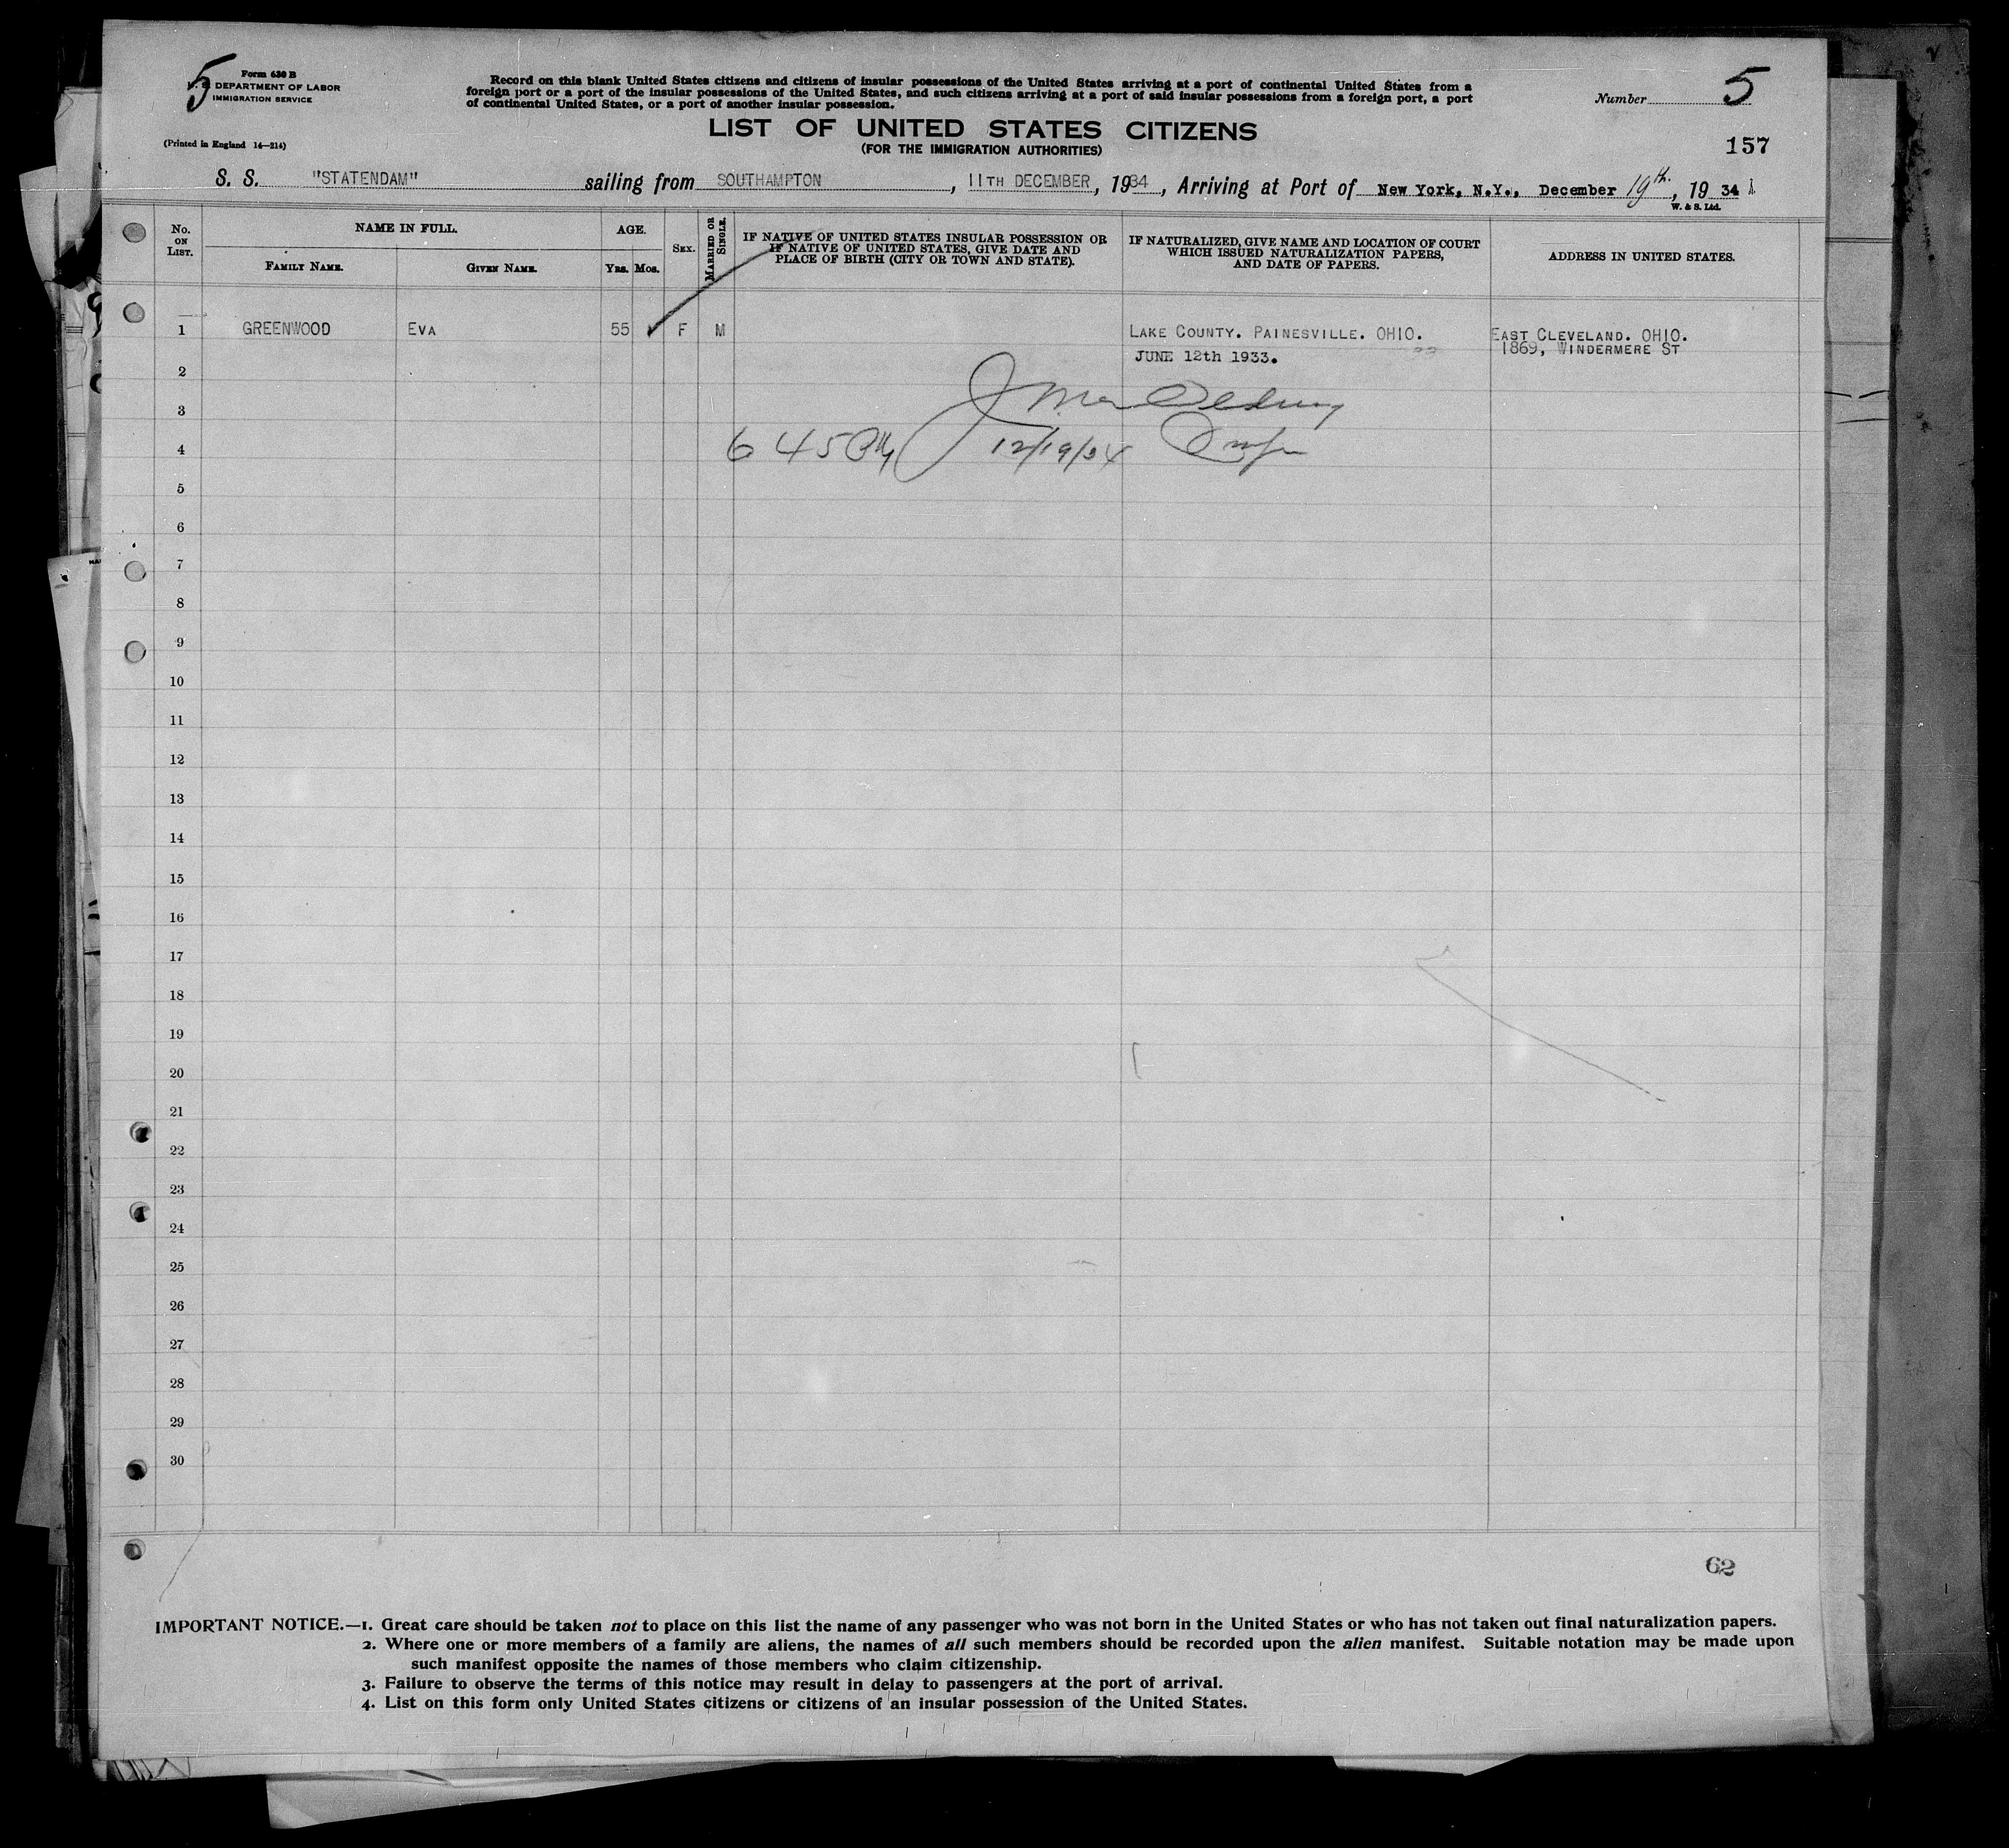 5
Form 630 B
U. S. DEPARTMENT OF LABOR
IMMIGRATION SERVICE
(Printed in England 14—214)
Record on this blank United States citizens and citizens of insular possessions of the United States arriving at a port of continental United States from a
foreign port or a port of the insular possessions of the United States, and such citizens arriving at a port of said insular possessions from a foreign port, a port
of continental United States, or a port of another insular possession.
Number 5
LIST OF UNITED STATES CITIZENS
(FOR THE IMMIGRATION AUTHORITIES)
157
S. S. "STATENDAM" sailing from SOUTHAMPTON, 11TH DECEMBER, 1934, Arriving at Port of New York, N.Y., December 19th, 1934
W. & S. Ltd.
No. ON LIST.
NAME IN FULL.
FAMILY NAME.
GIVEN NAME.
AGE.
YRS. MOS.
SEX.
MARRIED OR SINGLE.
IF NATIVE OF UNITED STATES INSULAR POSSESSION OR
IF NATIVE OF UNITED STATES, GIVE DATE AND
PLACE OF BIRTH (CITY OR TOWN AND STATE).
IF NATURALIZED, GIVE NAME AND LOCATION OF COURT
WHICH ISSUED NATURALIZATION PAPERS,
AND DATE OF PAPERS.
ADDRESS IN UNITED STATES.
1 GREENWOOD EVA 55 F M LAKE COUNTY. PAINESVILLE. OHIO. EAST CLEVELAND. OHIO.
JUNE 12th 1933. 1869, WINDERMERE ST
2
3
4 6 45 PM 12/19/34
5
6
7
8
9
10
11
12
13
14
15
16
17
18
19
20
21
22
23
24
25
26
27
28
29
30
62
IMPORTANT NOTICE.—1. Great care should be taken not to place on this list the name of any passenger who was not born in the United States or who has not taken out final naturalization papers.
2. Where one or more members of a family are aliens, the names of all such members should be recorded upon the alien manifest. Suitable notation may be made upon
such manifest opposite the names of those members who claim citizenship.
3. Failure to observe the terms of this notice may result in delay to passengers at the port of arrival.
4. List on this form only United States citizens or citizens of an insular possession of the United States.